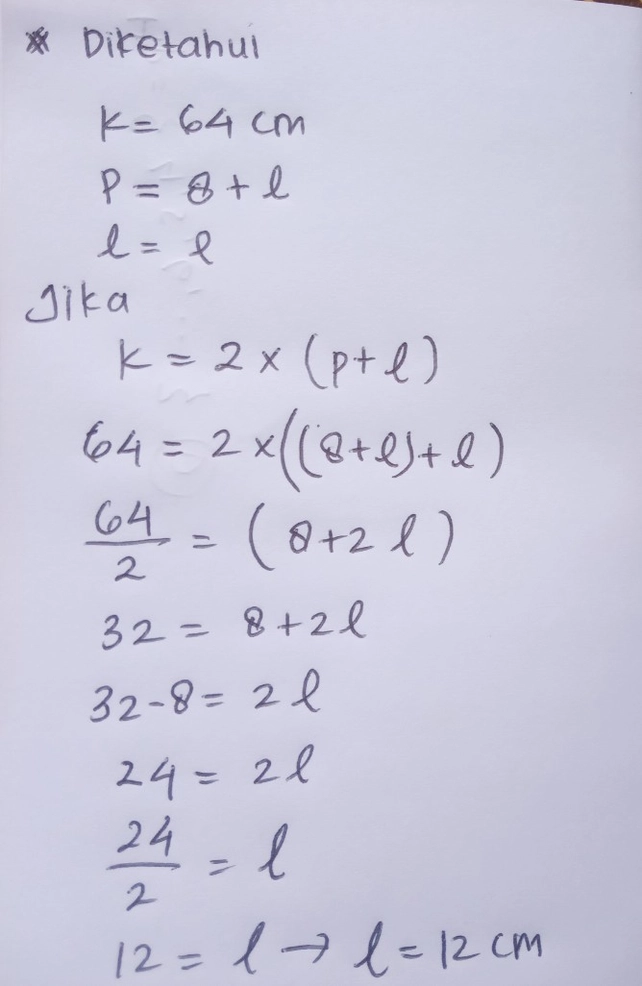 * Diketahui
K = 64 cm
P = 8 + l
l = l
Jika
K = 2 x (p + l)
64 = 2 x ((8 + l) + l)
64/2 = (8 + 2 l)
32 = 8 + 2 l
32 - 8 = 2 l
24 = 2 l
24/2 = l
12 = l → l = 12 cm